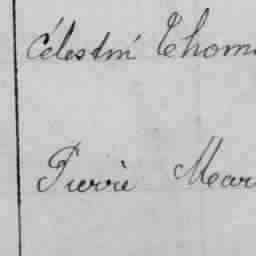 Célestin Thom
Pierre Mar